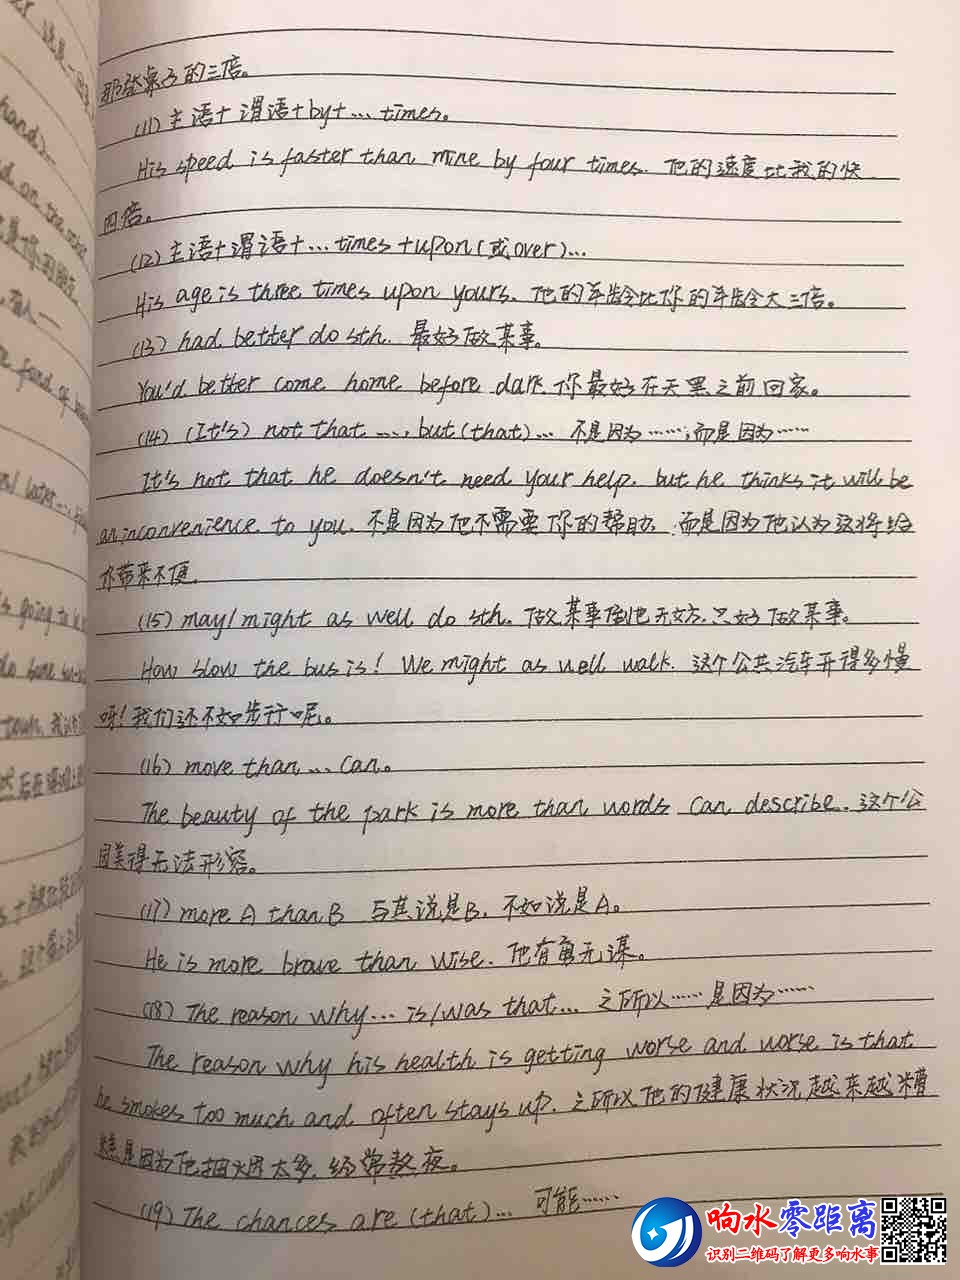 那张桌子的三倍。
(11) 主语+谓语+by+…times。
His speed is faster than mine by four times. 他的速度比我的快
四倍。
(12) 主语+谓语+…times+upon(或over)…
His age is three times upon yours. 他的年龄比你的年龄大三倍。
(13) had better do sth. 最好做某事。
You'd better come home before dark. 你最好在天黑之前回家。
(14) (It's) not that …, but (that)… 不是因为……,而是因为……
It's not that he doesn't need your help, but he thinks it will be
an inconvenience to you. 不是因为他不需要你的帮助,而是因为他认为这将给
你带来不便.
(15) may/might as well do sth. 做某事倒也无妨.只好做某事。
How slow the bus is! We might as well walk. 这个公共汽车开得多慢
呀!我们还不如步行呢。
(16) move than…can。
The beauty of the park is more than words can describe. 这个公
园美得无法形容。
(17) more A than B 与其说是B,不如说是A。
He is more brave than wise. 他有勇无谋。
(18) The reason why… is/was that… 之所以……是因为……
The reason why his health is getting worse and worse is that
he smokes too much and often stays up. 之所以他的健康状况越来越糟
糕是因为他抽烟太多,经常熬夜。
(19) The chances are (that)… 可能……
响水零距离
识别二维码了解更多响水事